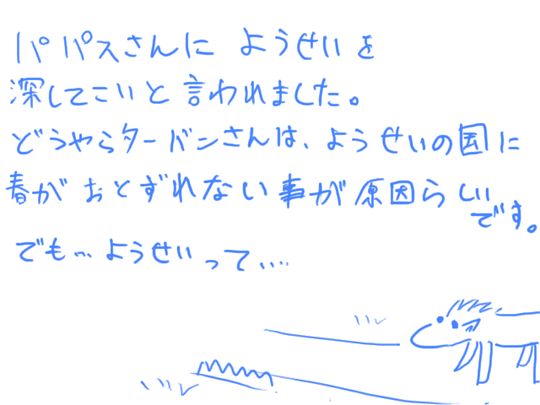 パパスさんに ようせいを
深してこいと言われました。
どうやらターバンさんは、ようせいの国に
春がおとずれない事が原因らしい
です。
でも…ようせいって….